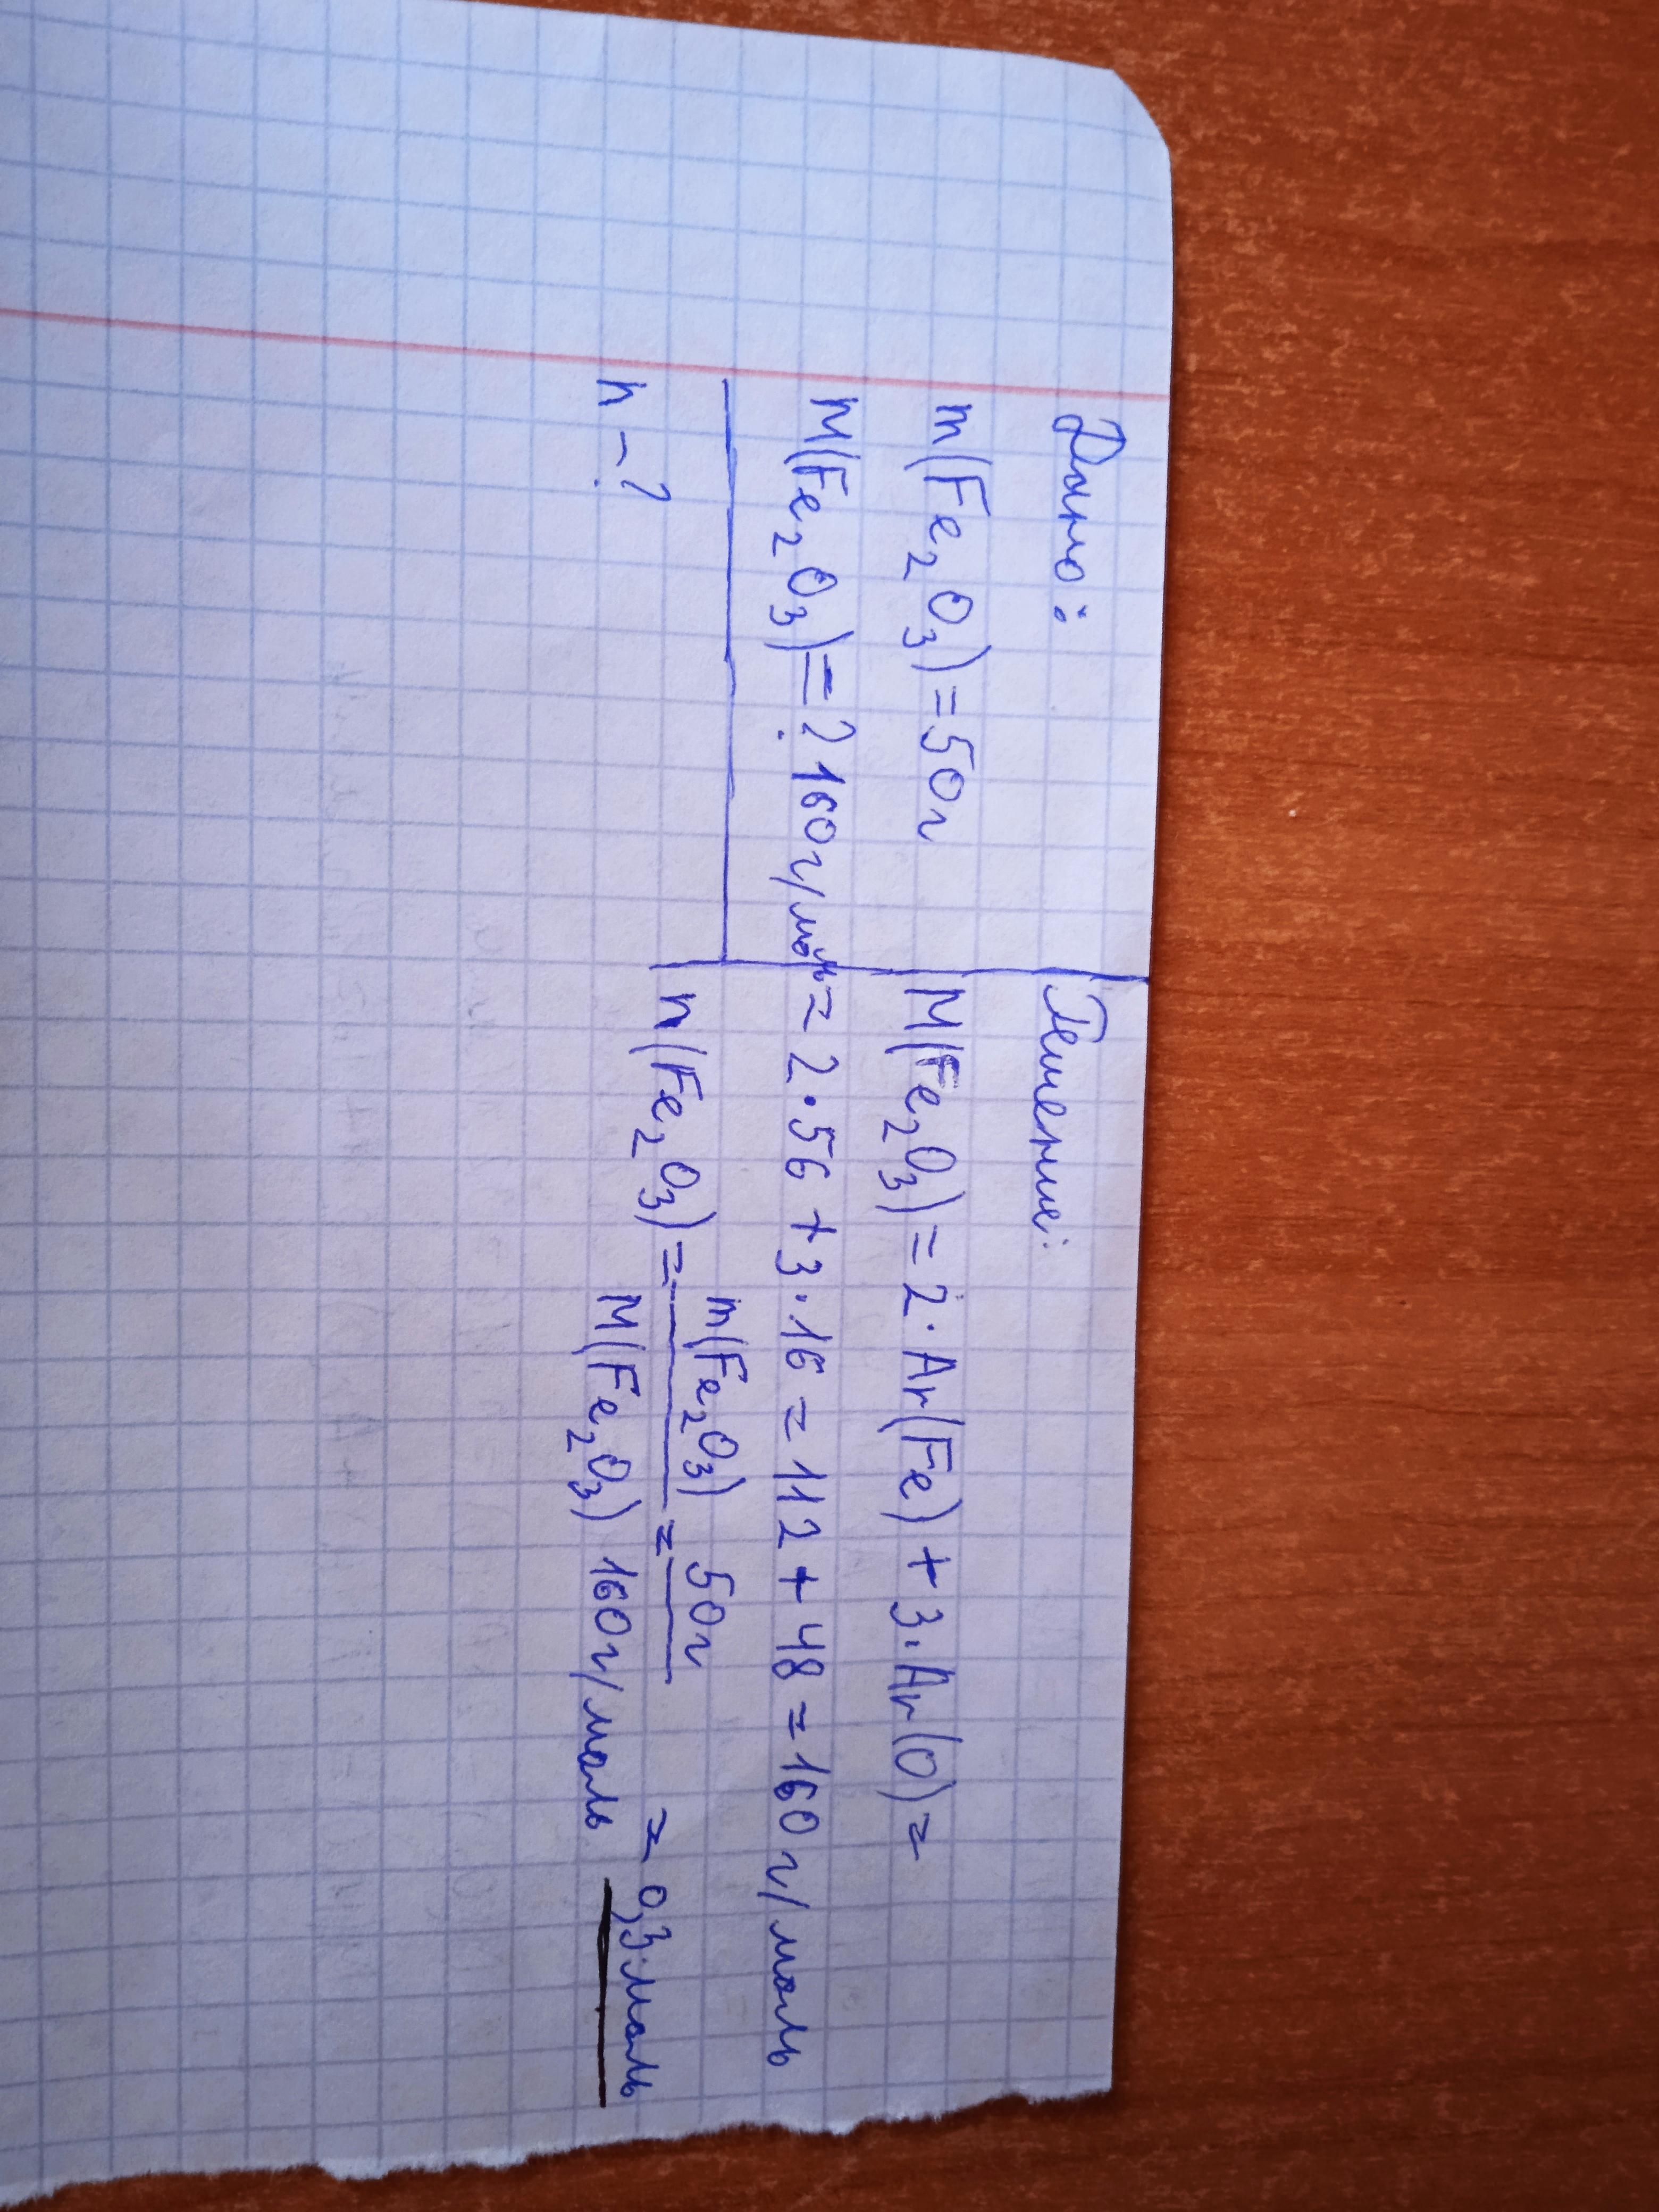 Дано:
m(Fe₂O₃)=50г
M(Fe₂O₃)=? 160г/моль
n-?
Решение:
M(Fe₂O₃)=2·Ar(Fe)+3·Ar(O)=
=2·56+3·16=112+48=160г/моль
n(Fe₂O₃)=m(Fe₂O₃)/M(Fe₂O₃)=50г/160г/моль=0,3моль